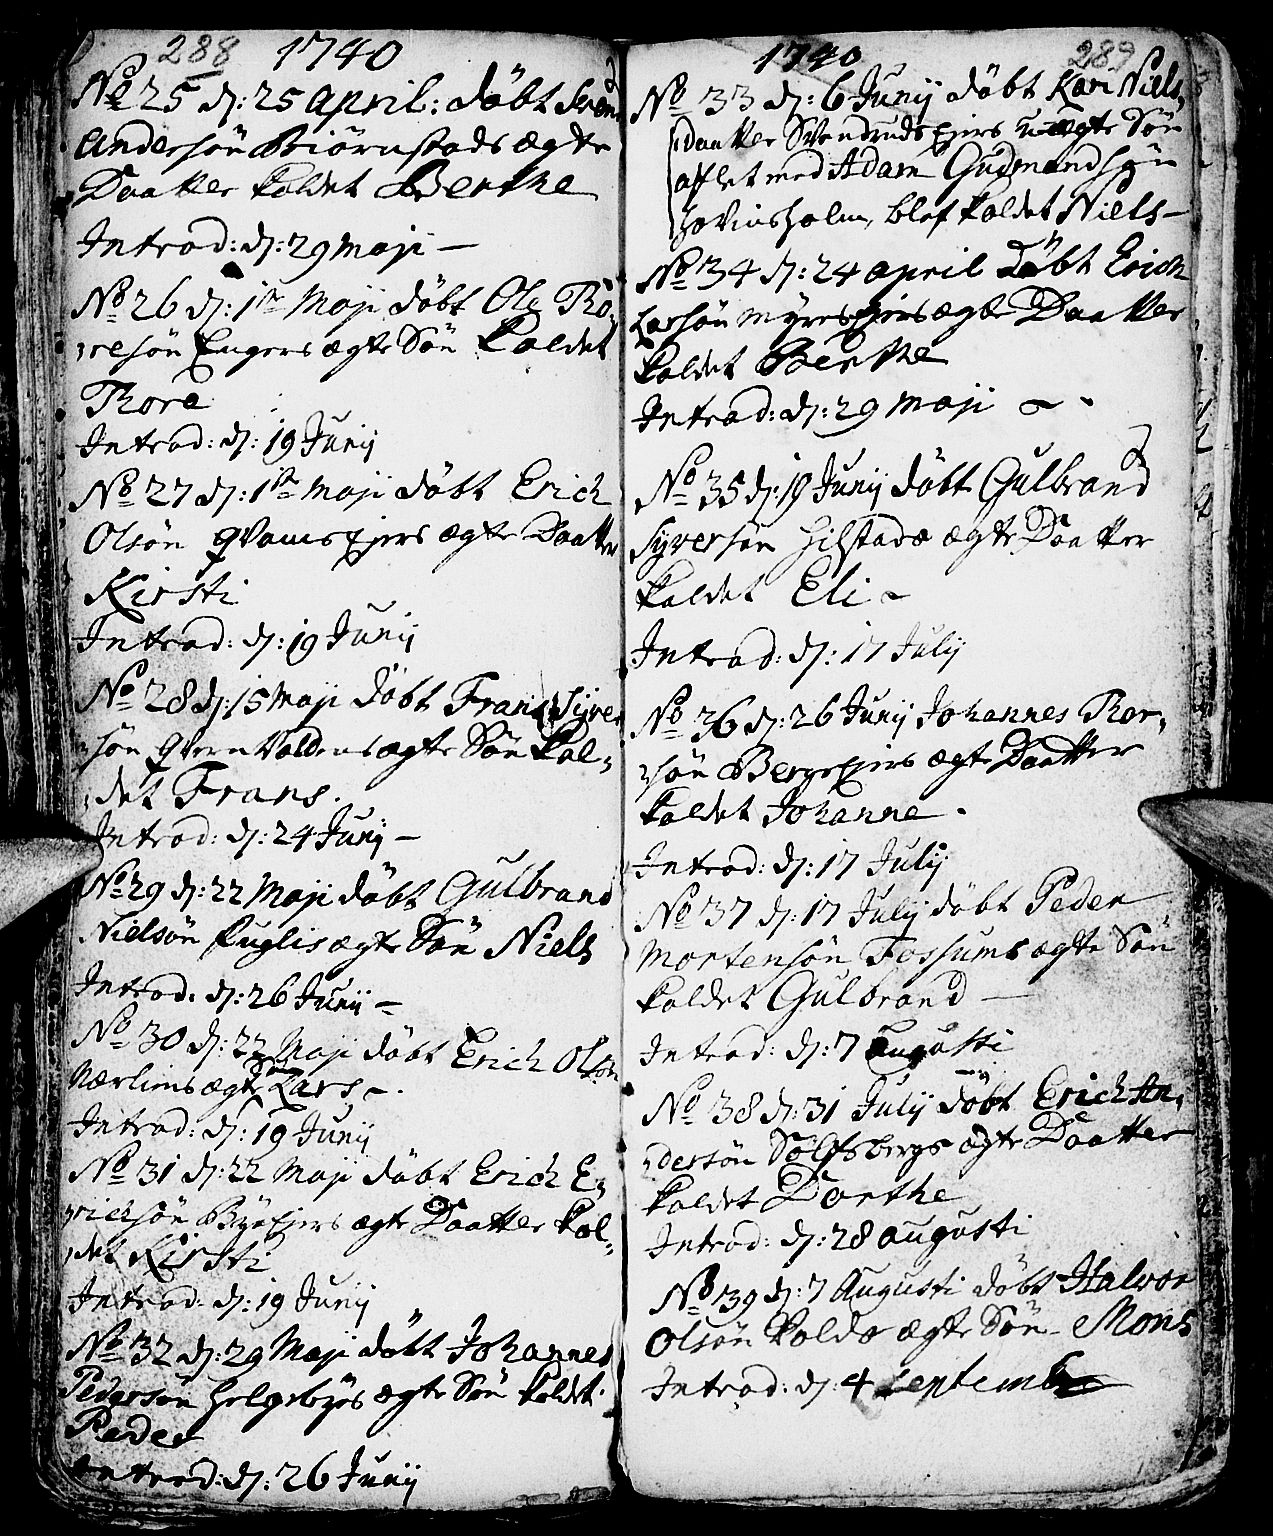 288 1740
No 25 d: 25 April: döbt Sören
Andersön Biörnstads ægte
Daatter kaldet Berthe
Introd: d: 29 Maji —
No 26 d: 1ste Maji döbt Ole To,
resön Engers ægte Sön kaldet
Thore
Introd: d: 19 Junij
No 27 d: 1ste Maji döbt Erich
Olsön qvams Ejers ægte Daatter
Kirsti
Introd: d: 19 Junij
No 28 d: 15 Maji döbt Frans Syver
sön qvernvoldens ægte Sön kal,
det Frans.
Introd: d: 24 Junij —
No 29 d: 22 Maji döbt Gulbrand
Nielsön Fuglis ægte Sön Niels
Introd: d: 26 Junij —
No 30 d: 22 Maji döbt Erich Olsön
Nærliens ægte Sön Lars —.
Introd: d: 19 Junij
No 31 d: 22 Maji döbt Erich E,
richsön Byeejers ægte Daatter kal,
det Kirsti
Introd: d: 19 Junij
No 32 d: 29 Maji döbt Johannes
Pedersön Helgebyes ægte Sön kaldet
Peder
Introd: d: 26 Junij
1740 289
No 33 d: 6 Junij döbt Kari Niels,
daatter Svendruds Ejers uægte Sön
aflet med Adam Gudmundsön
Hovinsholm, blef kaldet Niels —
No 34 d: 24 April Döbt Erich
Larsön Myres Ejers ægte Daatter
kaldet Berthe
Introd: d: 29 Maji —
No 35 d: 19 Junij döbt Gulbrand
Syversön Hilstads ægte Daatter
kaldet Eli —
Introd: d: 17 Julij
No 36 d: 26 Junij Johannes Thor,
sön Bergs Ejers ægte Daatter
kaldet Johanne.
Introd: d: 17 Julij
No 37 d: 17 Julij döbt Peder
Mortensön Fossums ægte Sön
kaldet Gulbrand —
Introd: d: 7 Augusti
No 38 d: 31 Julij döbt Erich An,
dersön Sölfsbergs ægte Daatter
kaldet Dorthe
Introd: d: 28 Augusti
No 39 d: 7 Augusti döbt Halvor
Olsön Kolde ægte Sön — Mons
Introd: d: 4 Septemb